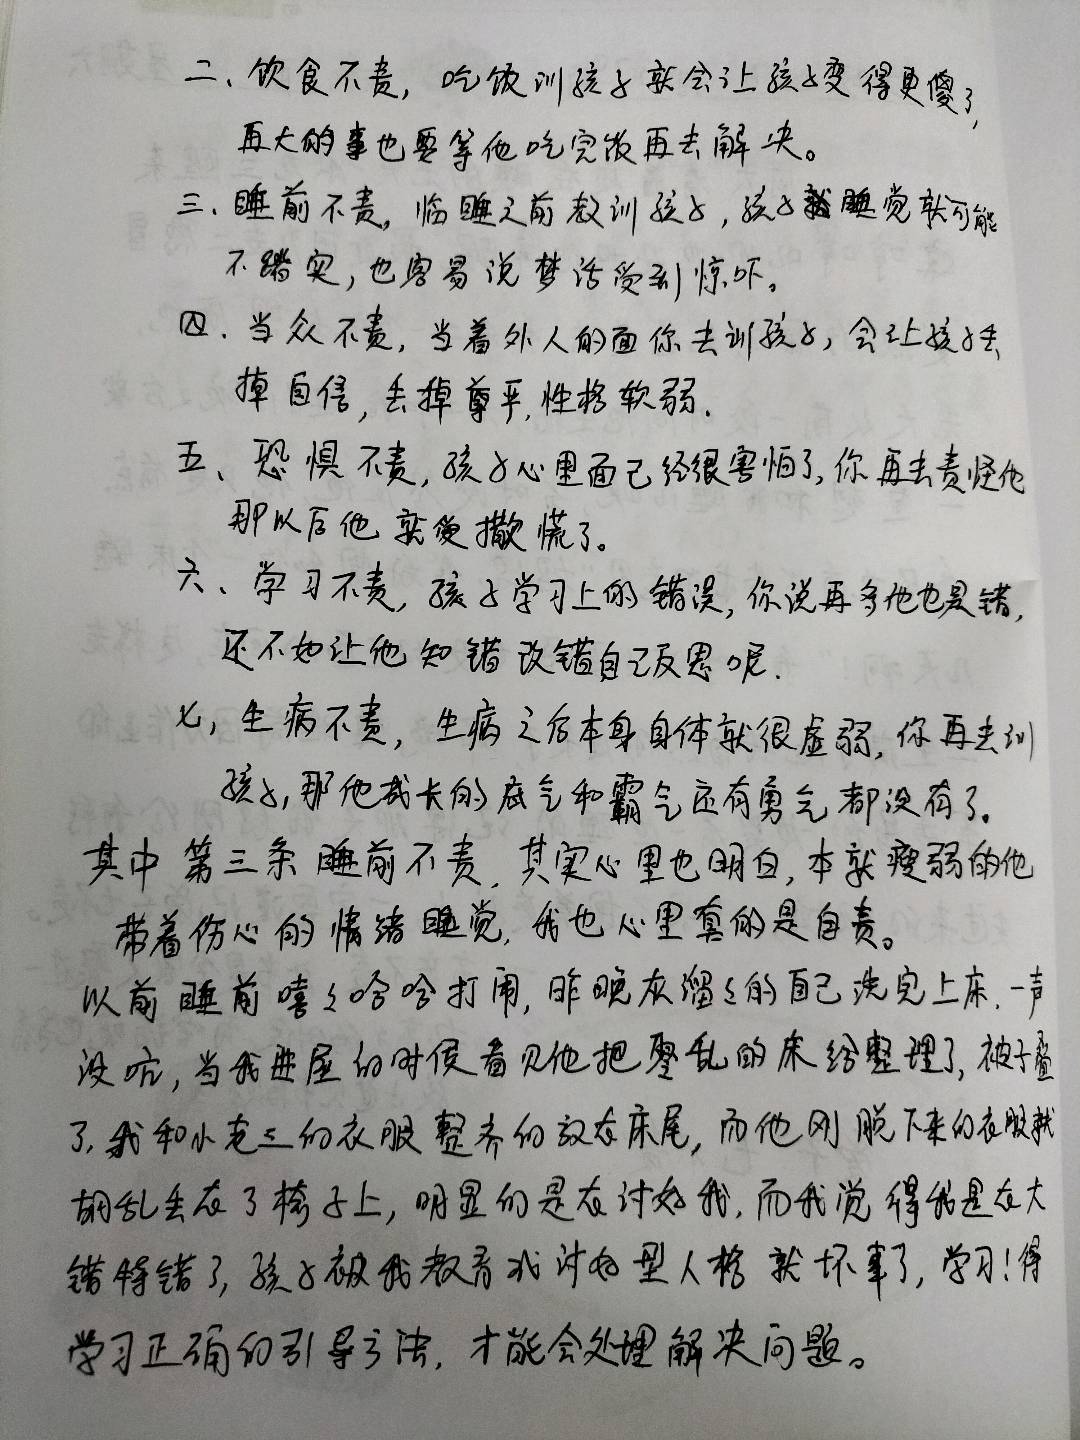 二、饮食不责，吃饭训孩子就会让孩子变得更傻了，
再大的事也要等他吃完饭再去解决。
三、睡前不责，临睡之前教训孩子，孩子睡觉就可能
不踏实，也容易说梦话受到惊吓。
四、当众不责，当着外人的面你去训孩子，会让孩子丢
掉自信，丢掉尊严，性格软弱．
五、恐惧不责，孩子心里面已经很害怕了，你再去责怪他
那以后他就使撒慌了。
六、学习不责，孩子学习上的错误，你说再多他也是错，
还不如让他知错改错自己反思呢．
七，生病不责，生病之后本身身体就很虚弱，你再去训
孩子，那他成长的底气和霸气还有勇气都没有了。
其中第三条睡前不责，其实心里也明白，本就瘦弱的他
带着伤心的情绪睡觉，我也心里真的是自责。
以前睡前嘻々哈哈打闹，昨晚灰溜々的自己洗完上床．一声
没吭，当我进屋的时侯看见他把整乱的床给整理了，被子叠
了，我和小老三的衣服整齐的放在床尾，而他刚脱下来的衣服就
胡乱丢在了椅子上，明显的是在讨好我，而我觉得我是在大
错特错了，孩子被我教育成讨好型人格就坏事了，学习！得
学习正确的引导方法，才能会处理解决问题。